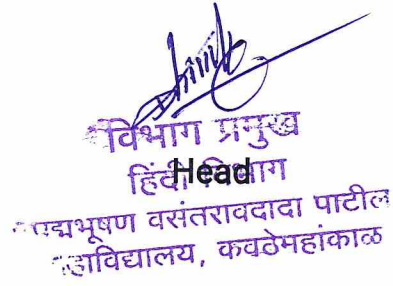 विभाग प्रमुख
हिंदी विभाग
Head
पद्मभूषण वसंतरावदादा पाटील
महाविद्यालय, कवठेमहांकाळ